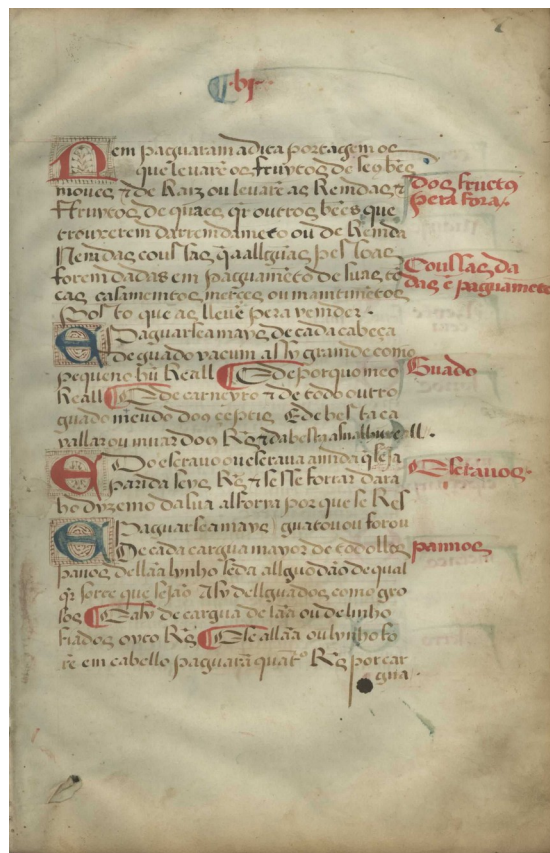 bj
Nem paguaram a dita portagem os
que levarẽ os fruytos de seus bẽes
moves & de Raiz ou levarẽ as Remdas &
ffruytos de quaes qr outros bẽes que
trouxerem darremdamẽto ou de Remda
Nem das coussas q̃ a allgũas pessoas
forem dadas em paguamẽto de suas tẽ
cas casamemtos merces ou mantimẽtos
Posto que as llevẽ pera vemder
dos fructos
pera fora
Coussas da
das ẽ paguameto
E Paguarsea mays de cada cabeça
de guado vacum assy grande como
pequeno hũ Reall E de porquo meo
Reall E de carneyro & de todo outro
guado meudo dous ceptis E de besta ca
vallar ou muar doos Rs & da besta asnall huũ reall
Guado
E Do escravo ou escrava aimda q̃ seja
parida seys Rs & se sse forrar dara
ho dyzemo da sua alforria por que se Res
Escravos
E Paguarsea mays guatou ou forou
De cada cargua mayor de todollos
panos dellãa lynho seda allguodão de qual
qr sorte que sejão Asy dellguados como gro
sos E asy de cargua de lãa ou de linho
fiados oyto Rs E se a llãa ou lynho fo
rẽ em cabello paguarã quato Rs por car
gua
pannos